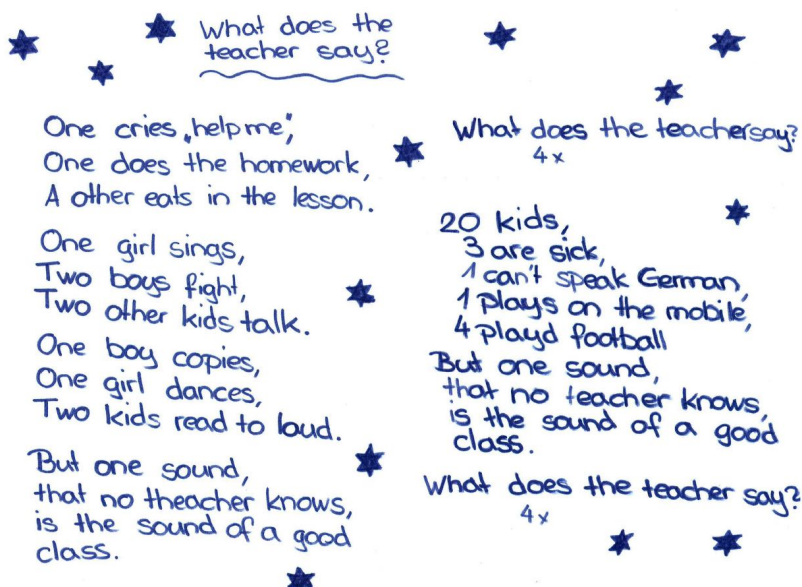 What does the
teacher say?
One cries „help me",
One does the homework,
A other eats in the lesson.
One girl sings,
Two boys fight,
Two other kids talk.
One boy copies,
One girl dances,
Two kids read to loud.
But one sound,
that no theacher knows,
is the sound of a good
class.
What does the teacher say?
4x
20 kids,
3 are sick,
1 can't speak German,
1 plays on the mobile,
4 playd football
But one sound,
that no teacher knows,
is the sound of a good
class.
What does the teacher say?
4x